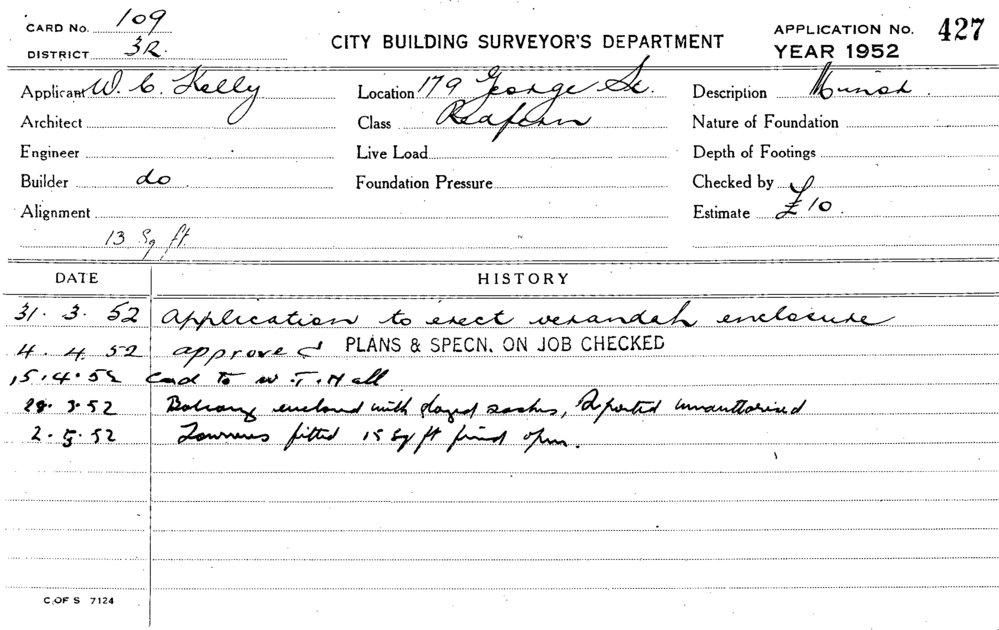 CARD No. 109
DISTRICT 3R.
CITY BUILDING SURVEYOR'S DEPARTMENT
APPLICATION No. 427
YEAR 1952
Applicant W. C. Kelly
Location 179 George St.
Description
Architect
Class Redfern
Nature of Foundation
Engineer
Live Load
Depth of Footings
Builder do
Foundation Pressure
Checked by
Alignment
Estimate £10.
13 Sq ft.
DATE HISTORY
31. 3. 52 Application to erect verandah enclosure
4. 4. 52 approved PLANS & SPECN. ON JOB CHECKED
15.4.52 Card to W. T. Hall
28.3.52 Balcony enclosed with glazed sashes, Reported unauthorised
2.5.52 Louvres fitted 15 Sq ft fixed open.
C. OF S 7124